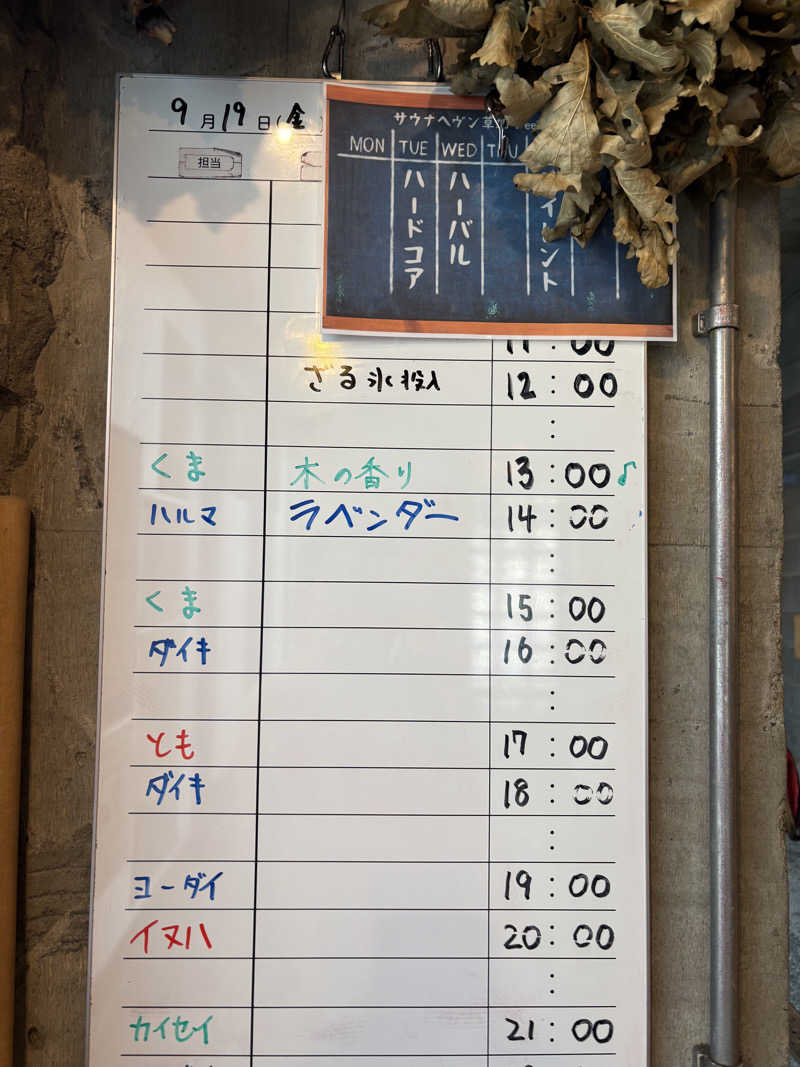 9月19日(金)
担当
サウナヘヴン草
MON TUE WED THU
ハードコア
ハーバル
イ
ント
11:00
ざる氷投入 12:00
:
くま 木の香り 13:00♪
ハルマ ラベンダー 14:00
:
くま 15:00
ダイキ 16:00
:
とも 17:00
ダイキ 18:00
:
ヨーダイ 19:00
イヌハ 20:00
:
カイセイ 21:00